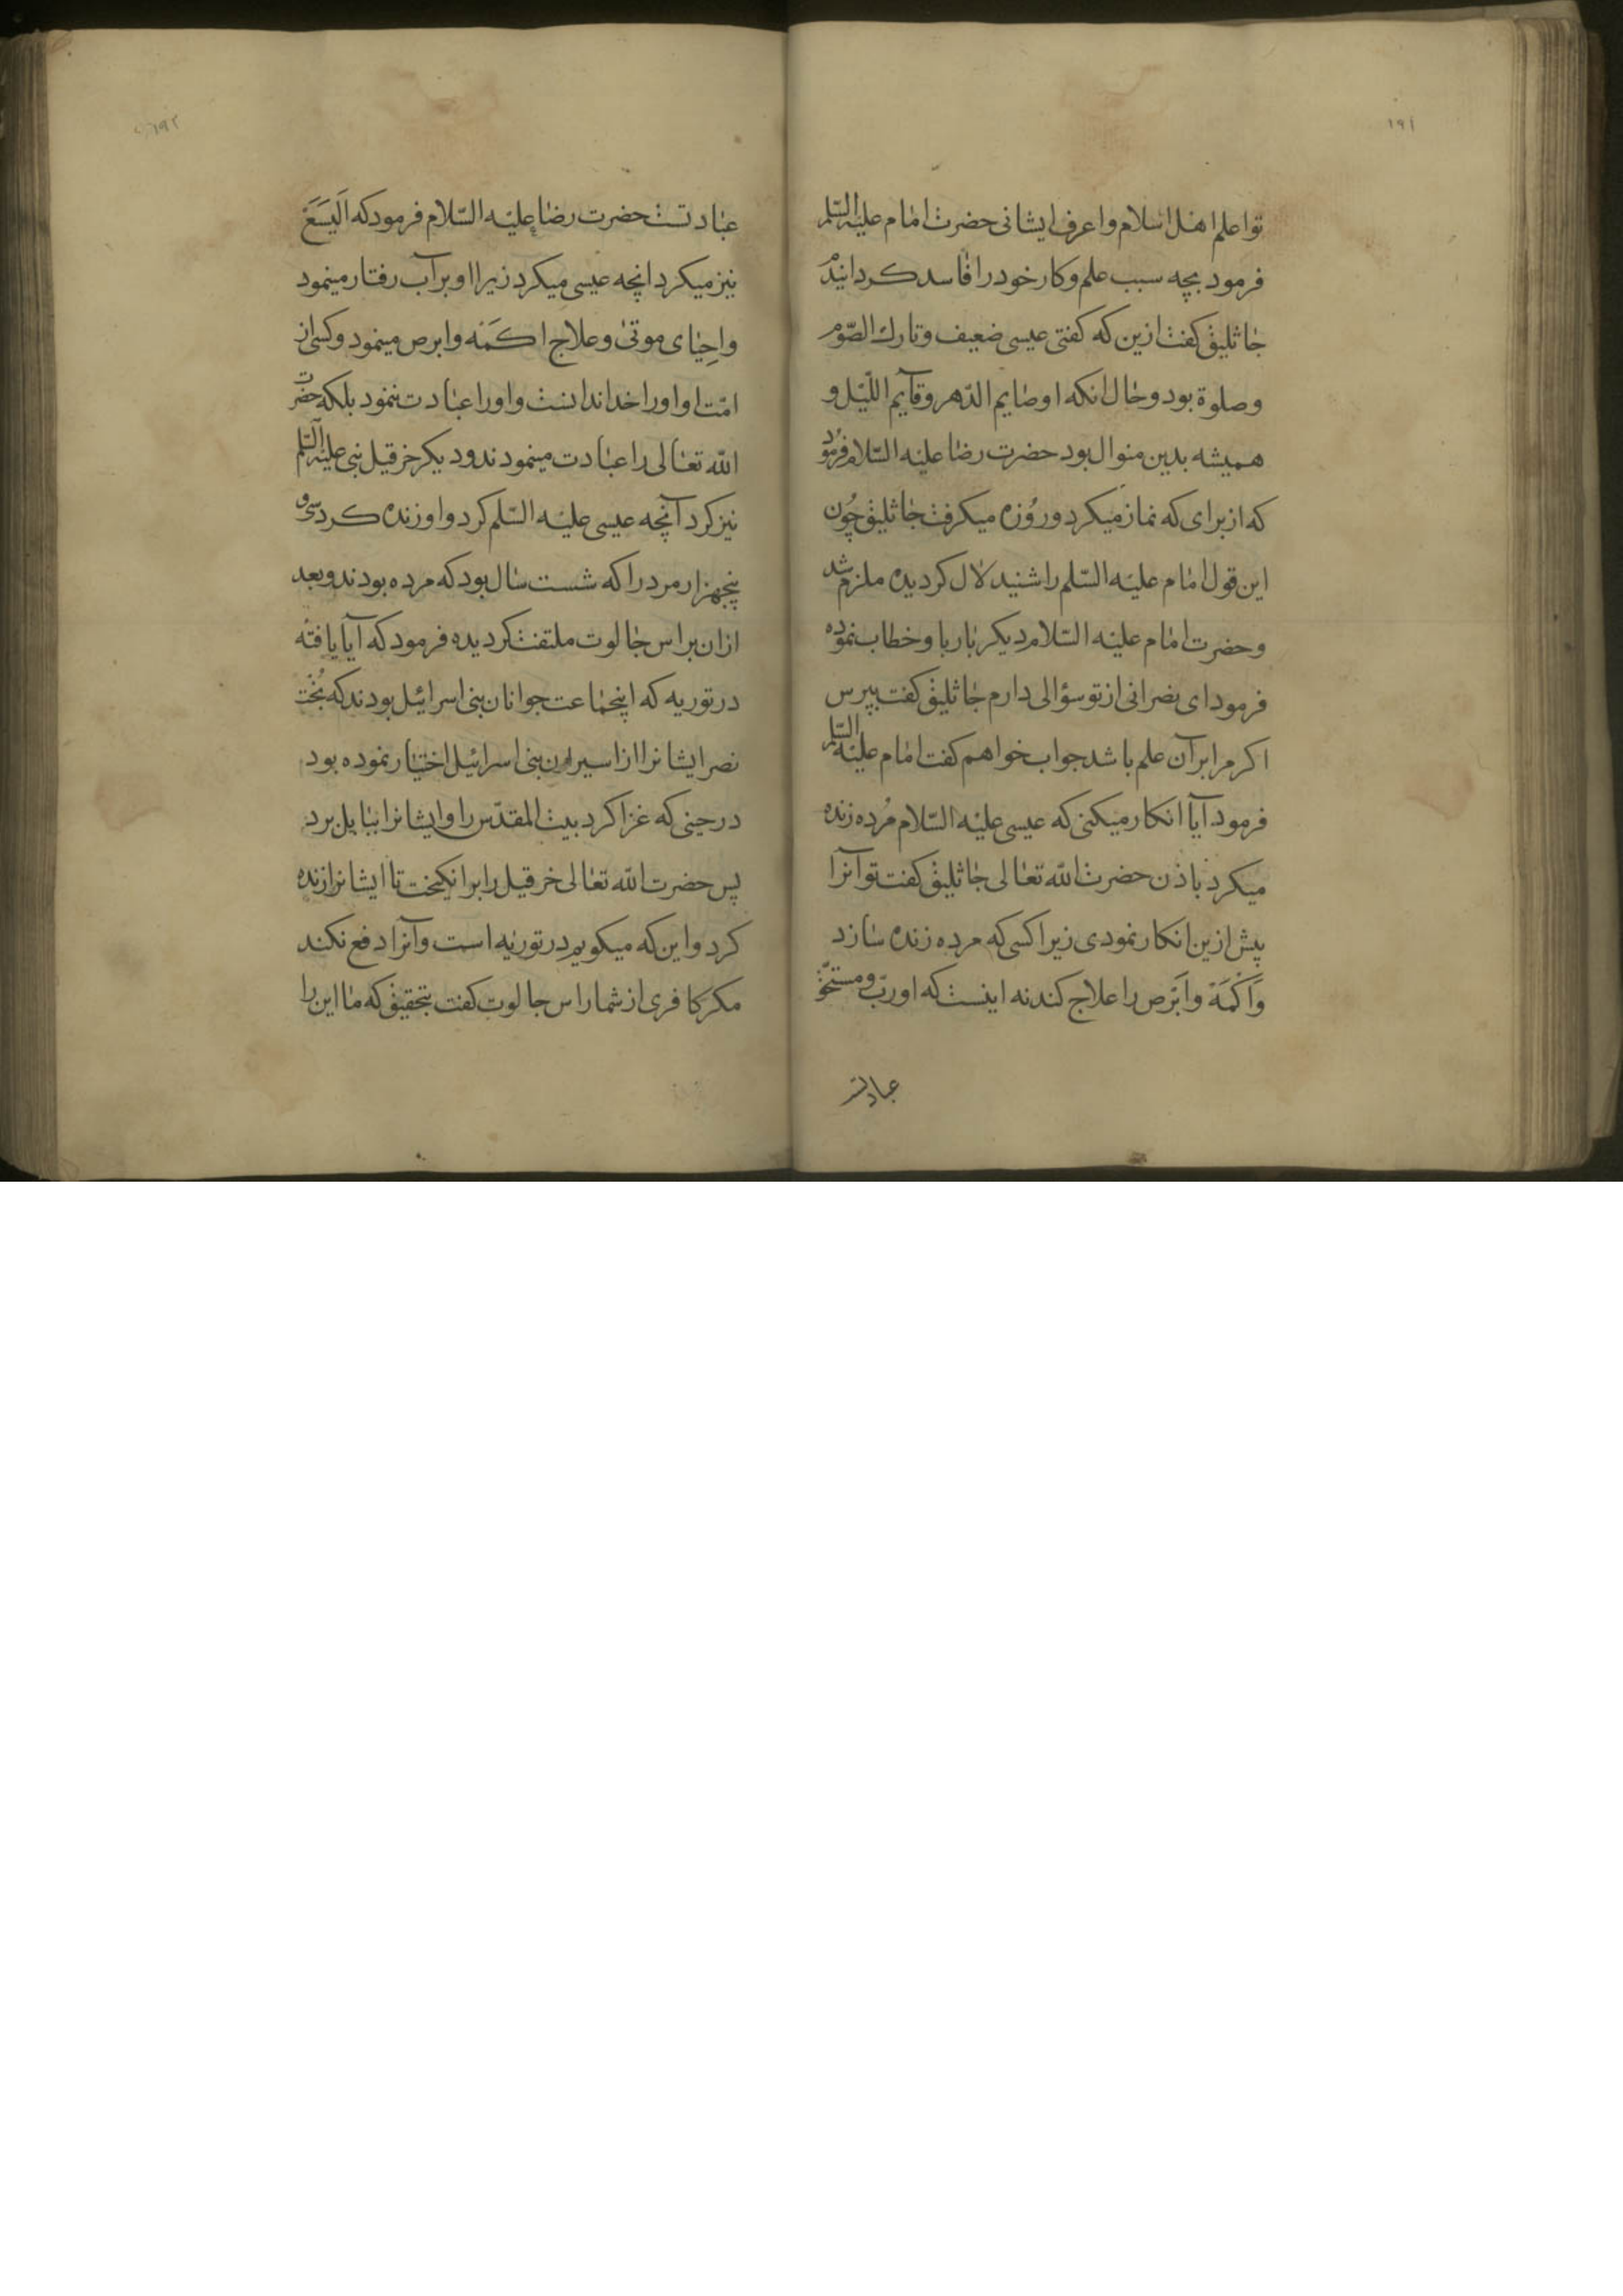 ۱۹۱
تو اعلم اهل اسلام و اعرف ایشانی حضرت امام علیه السلم
فرمود بچه سبب علم و کار خود را فاسد کردانیدم
جاثلیق کفت ازین که کفتی عیسی ضعیف و تارك الصّوم
و صلوة بود و حال انکه او صایم الدّهر و قآیم اللّیل و
همیشه بدین منوال بود حضرت رضا علیه السّلام فرمود
که از برای که نماز میکرد و روُزه میکرفت جاثلیق چُون
این قول امام علیه السّلم را شنید لال کردیده ملزم شد
و حضرت امام علیه السّلام دیکر بار با و خطاب نموده
فرمود ای نصرانی از تو سؤالی دارم جاثلیق کفت بپرس
اکر مرا بر آن علم باشد جواب خواهم کفت امام علیه السّلم
فرمود آیا انکار میکنی که عیسی علیه السّلام مُرده زنده
میکرد باذن حضرت الله تعالی جاثلیق کفت تو آنرا
پیش ازین انکار نمودی زیرا کسی که مرده زنده سازد
وَاَکْمَهَ وابَرَص را علاج کند نه اینست که او ربّ و مستحقّ
عبادتست
۱۹۲
عبادتست حضرت رضا علیه السّلام فرمود که اَلیَسَعَ
نیز میکرد انچه عیسی میکرد زیرا او بر آب رفتار مینمود
و احِیای موتیٰ و علاج اکمَه و ابرص مینمود و کسی از
امّت او او را خدا ندانست و او را عبادت ننمود بلکه حضرت
الله تعالی را عبادت مینمودند و دیکر خرقیل نبی علیه السّلم
نیز کرد آنچه عیسی علیه السّلم کرد و او زنده کرد سی و
پنجهزار مرد را که شست سال بود که مرده بودند و بعد
ازان براس جالوت ملتفت کردیده فرمود که آیا یافته
در توریه که اینجماعت جوانان بنی اسرائیل بودند که بُخْت
نصر ایشانرا از اسیران بنی اسرائیل اختیار نموده بود
در حینی که غزا کرد بیت المقدّس را و ایشانرا ببابل برد
پس حضرت الله تعالی خرقیل را برانکیخت تا ایشانرا زنده
کرد و این که میکویم در توریه است و آنرا دفع نکند
مکر کافری از شما راس جالوت کفت بتحقیق که ما این را